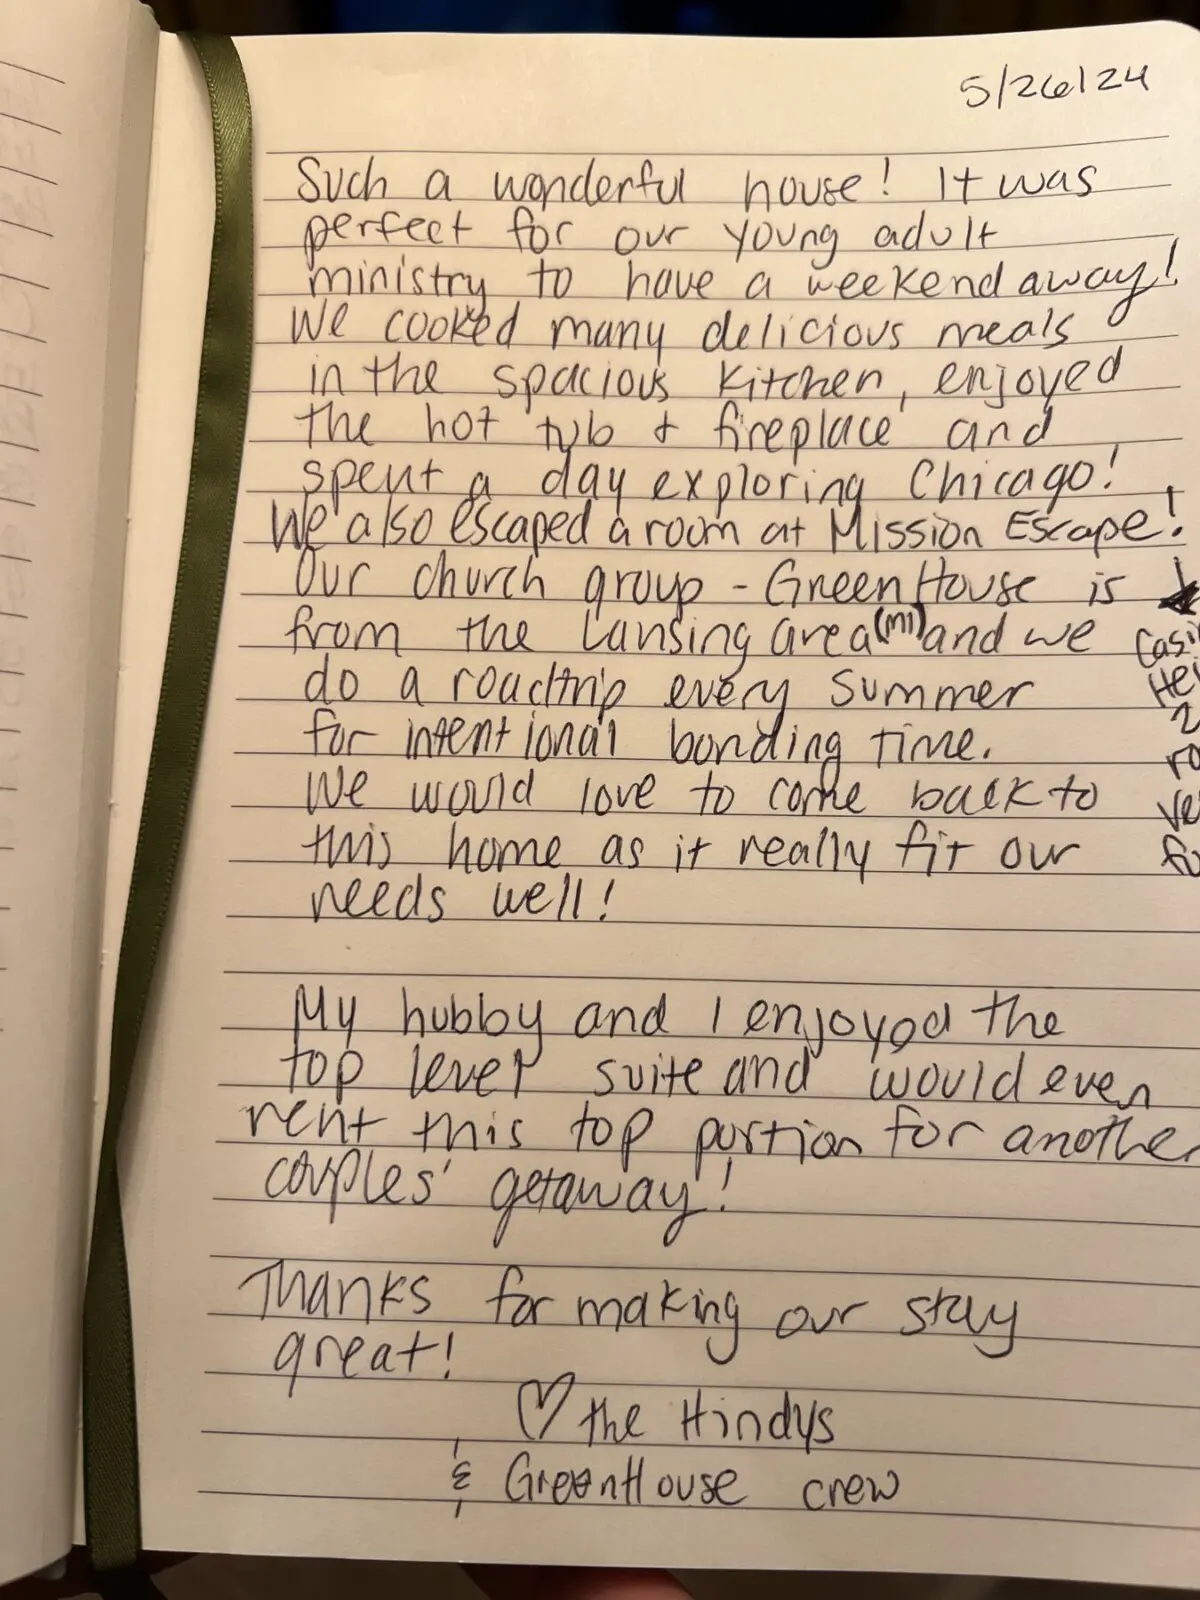 5/26/24
Such a wonderful house! It was
perfect for our young adult
ministry to have a weekend away!
We cooked many delicious meals
in the spacious kitchen, enjoyed
the hot tub & fireplace and
spent a day exploring Chicago!
We also escaped a room at Mission Escape!
Our church group - GreenHouse is
from the Lansing area (MI) and we
do a roadtrip every summer
for intentional bonding time.
We would love to come back to
this home as it really fit our
needs well!
My hubby and I enjoyed the
top level suite and would even
rent this top portion for another
couples' getaway!
Thanks for making our stay
great!
♡ the Hindys
& GreenHouse crew